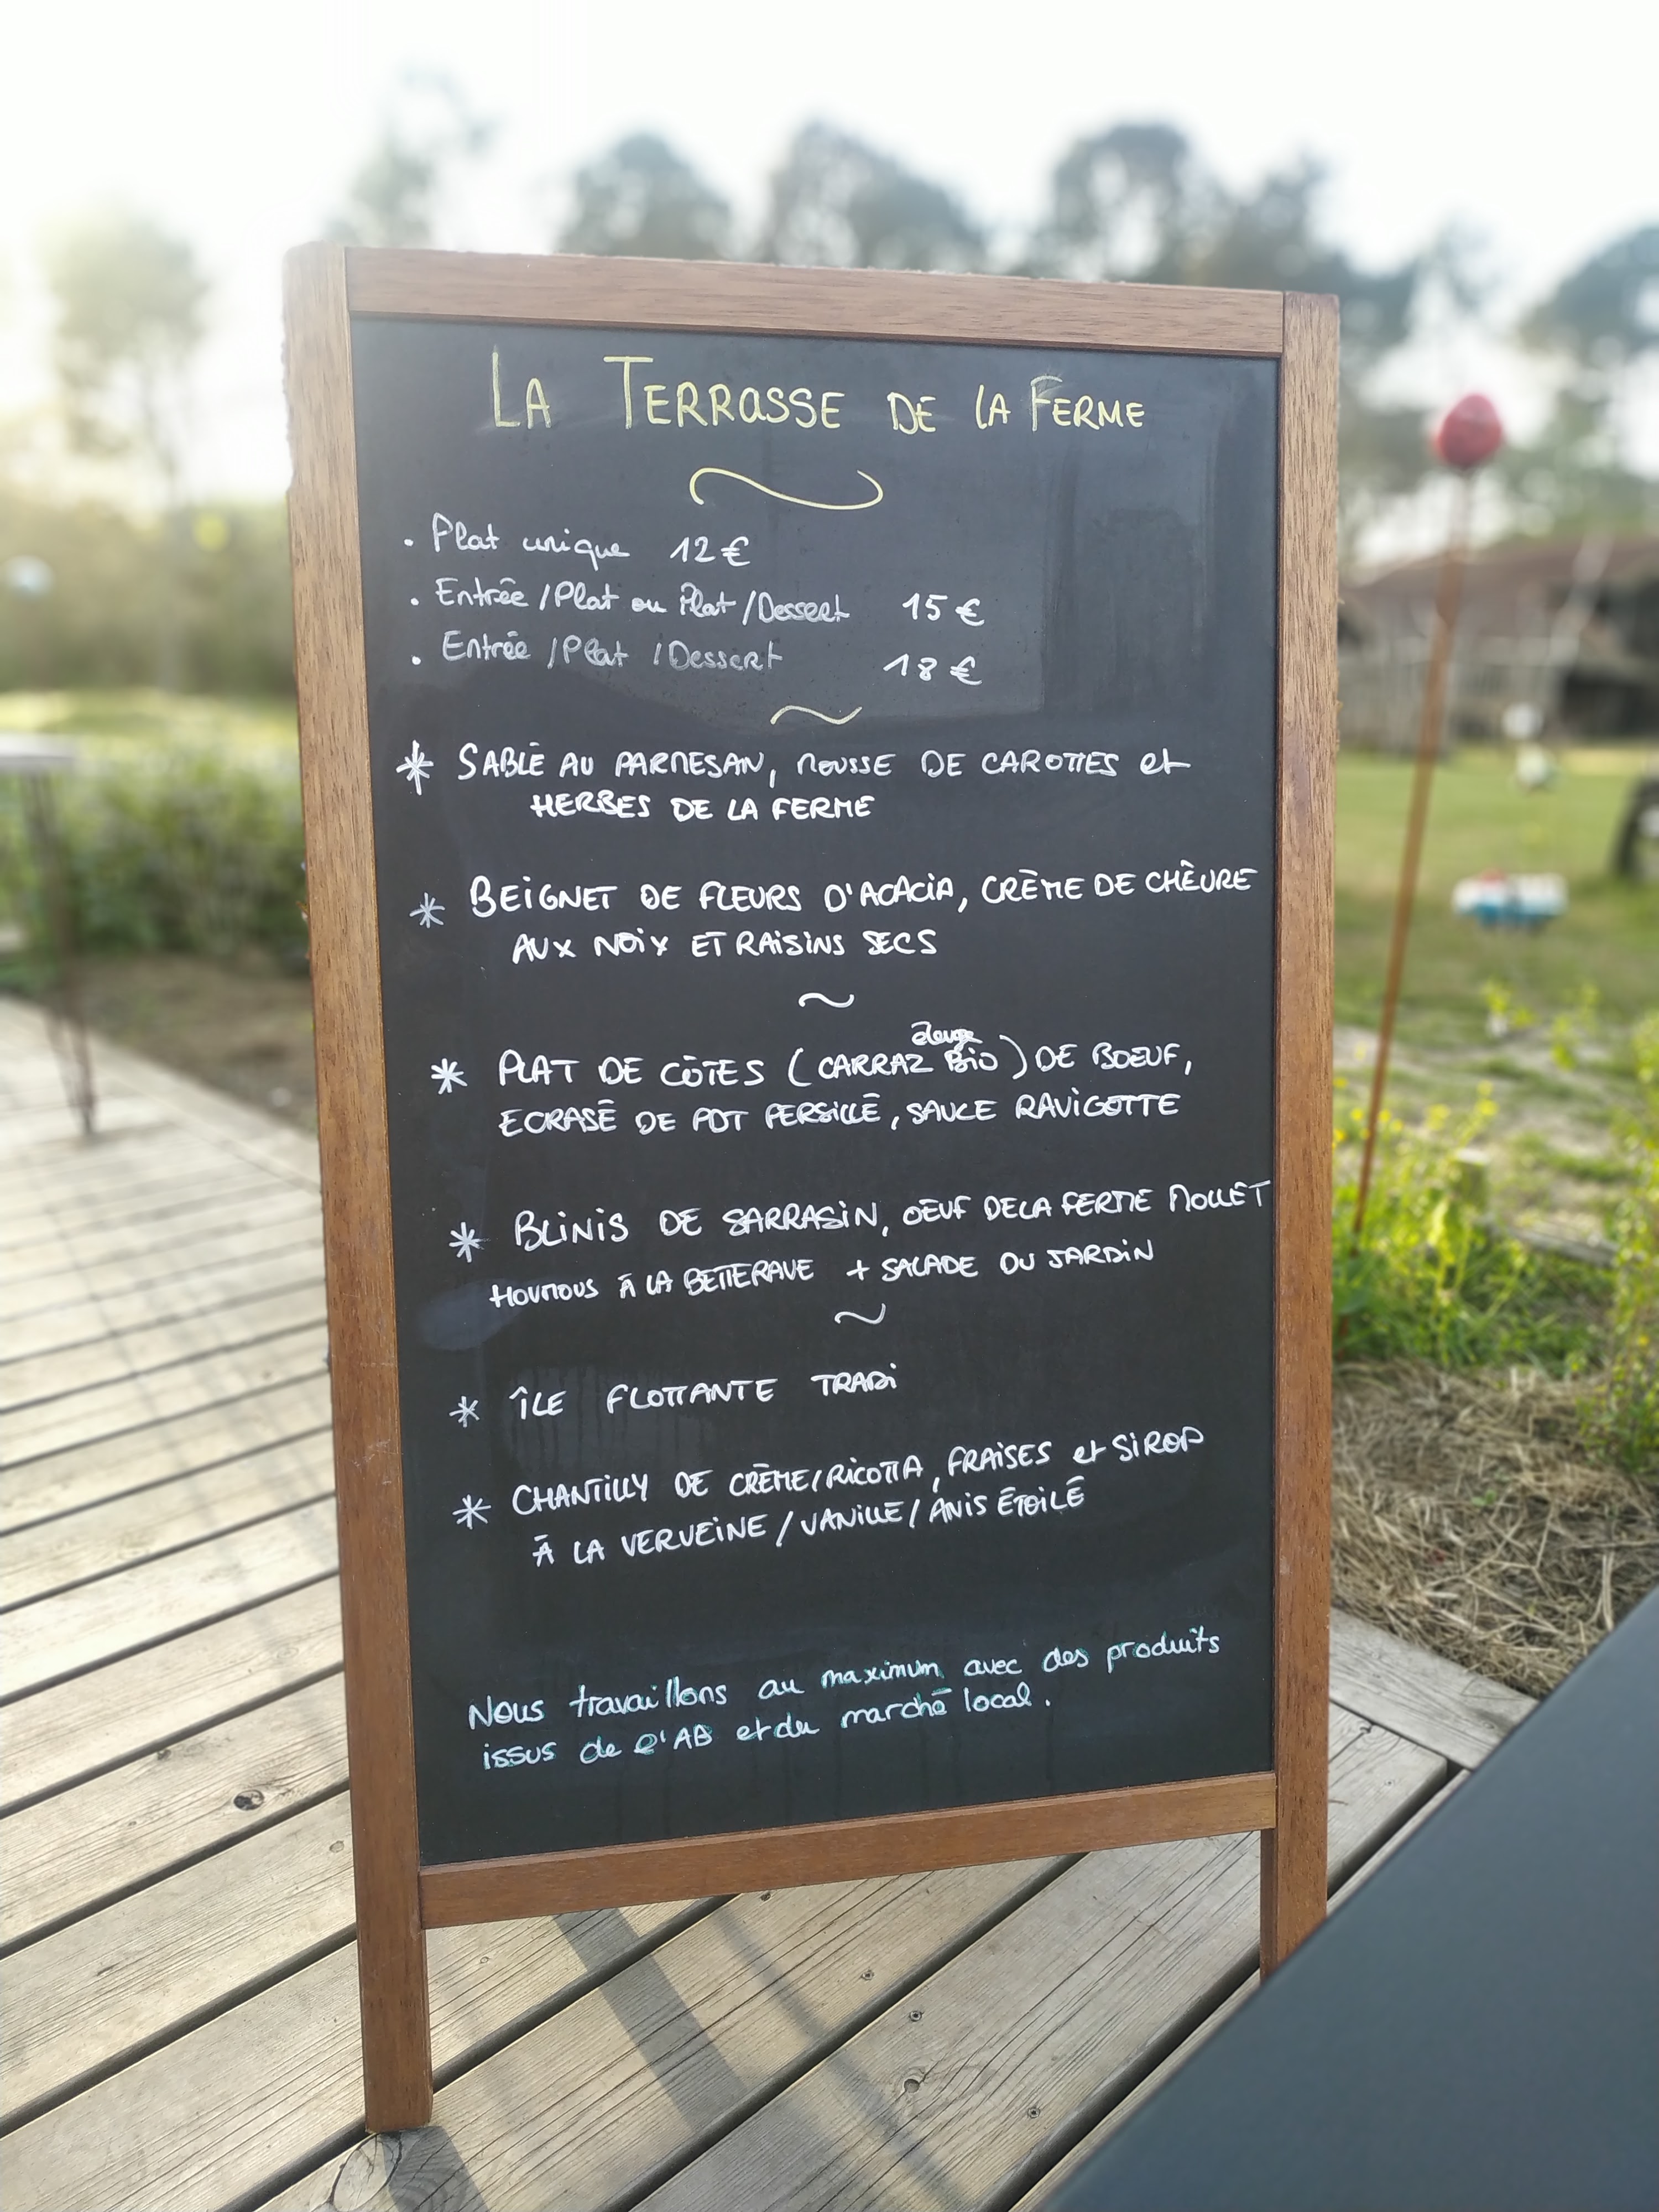 LA TERRASSE DE LA FERME
. Plat unique 12 €
. Entrée / Plat ou Plat / Dessert 15 €
. Entrée / Plat / Dessert 18 €
* SABLÉ AU PARMESAN, MOUSSE DE CAROTTES et
HERBES DE LA FERME
* BEIGNET DE FLEURS D'ACACIA, CRÈME DE CHÊVRE
AUX NOIX ET RAISINS SECS
~
* PLAT DE CÔTES (CARRAZ BIO) DE BOEUF,
ECRASÉ DE PDT PERSILLÉ, SAUCE RAVIGOTTE
* BLINIS DE SARRASIN, OEUF DE LA FERME MOLLET
HOUMOUS À LA BETTERAVE + SALADE DU JARDIN
~
* ÎLE FLOTTANTE TRADI
* CHANTILLY DE CRÈME/RICOTTA, FRAISES et SIROP
À LA VERVEINE / VANILLE / ANIS ÉTOILÉ
Nous travaillons au maximum avec des produits
issus de l'AB et du marché local.